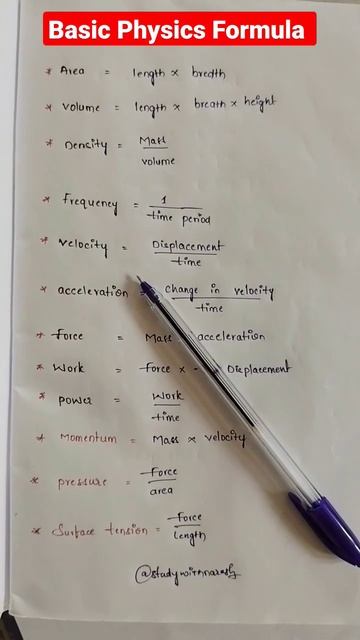 Basic Physics Formula
* Area = length × bredth
* Volume = length × breath × height
* Density = Mass
volume
* frequency = 1
time period
* velocity = Displacement
time
* acceleration = change in velocity
time
* force = Mass acceleration
* Work = force × Displacement
* power = Work
time
* Momentum = Mass × velocity
* pressure = force
area
* Surface tension = force
length